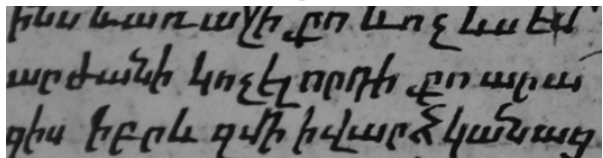 ինս և առաջի քո և ոչ ևս եմ
արժանի կոչել որդի քո արա
զիս իբրև զմի ի վարձկանաց